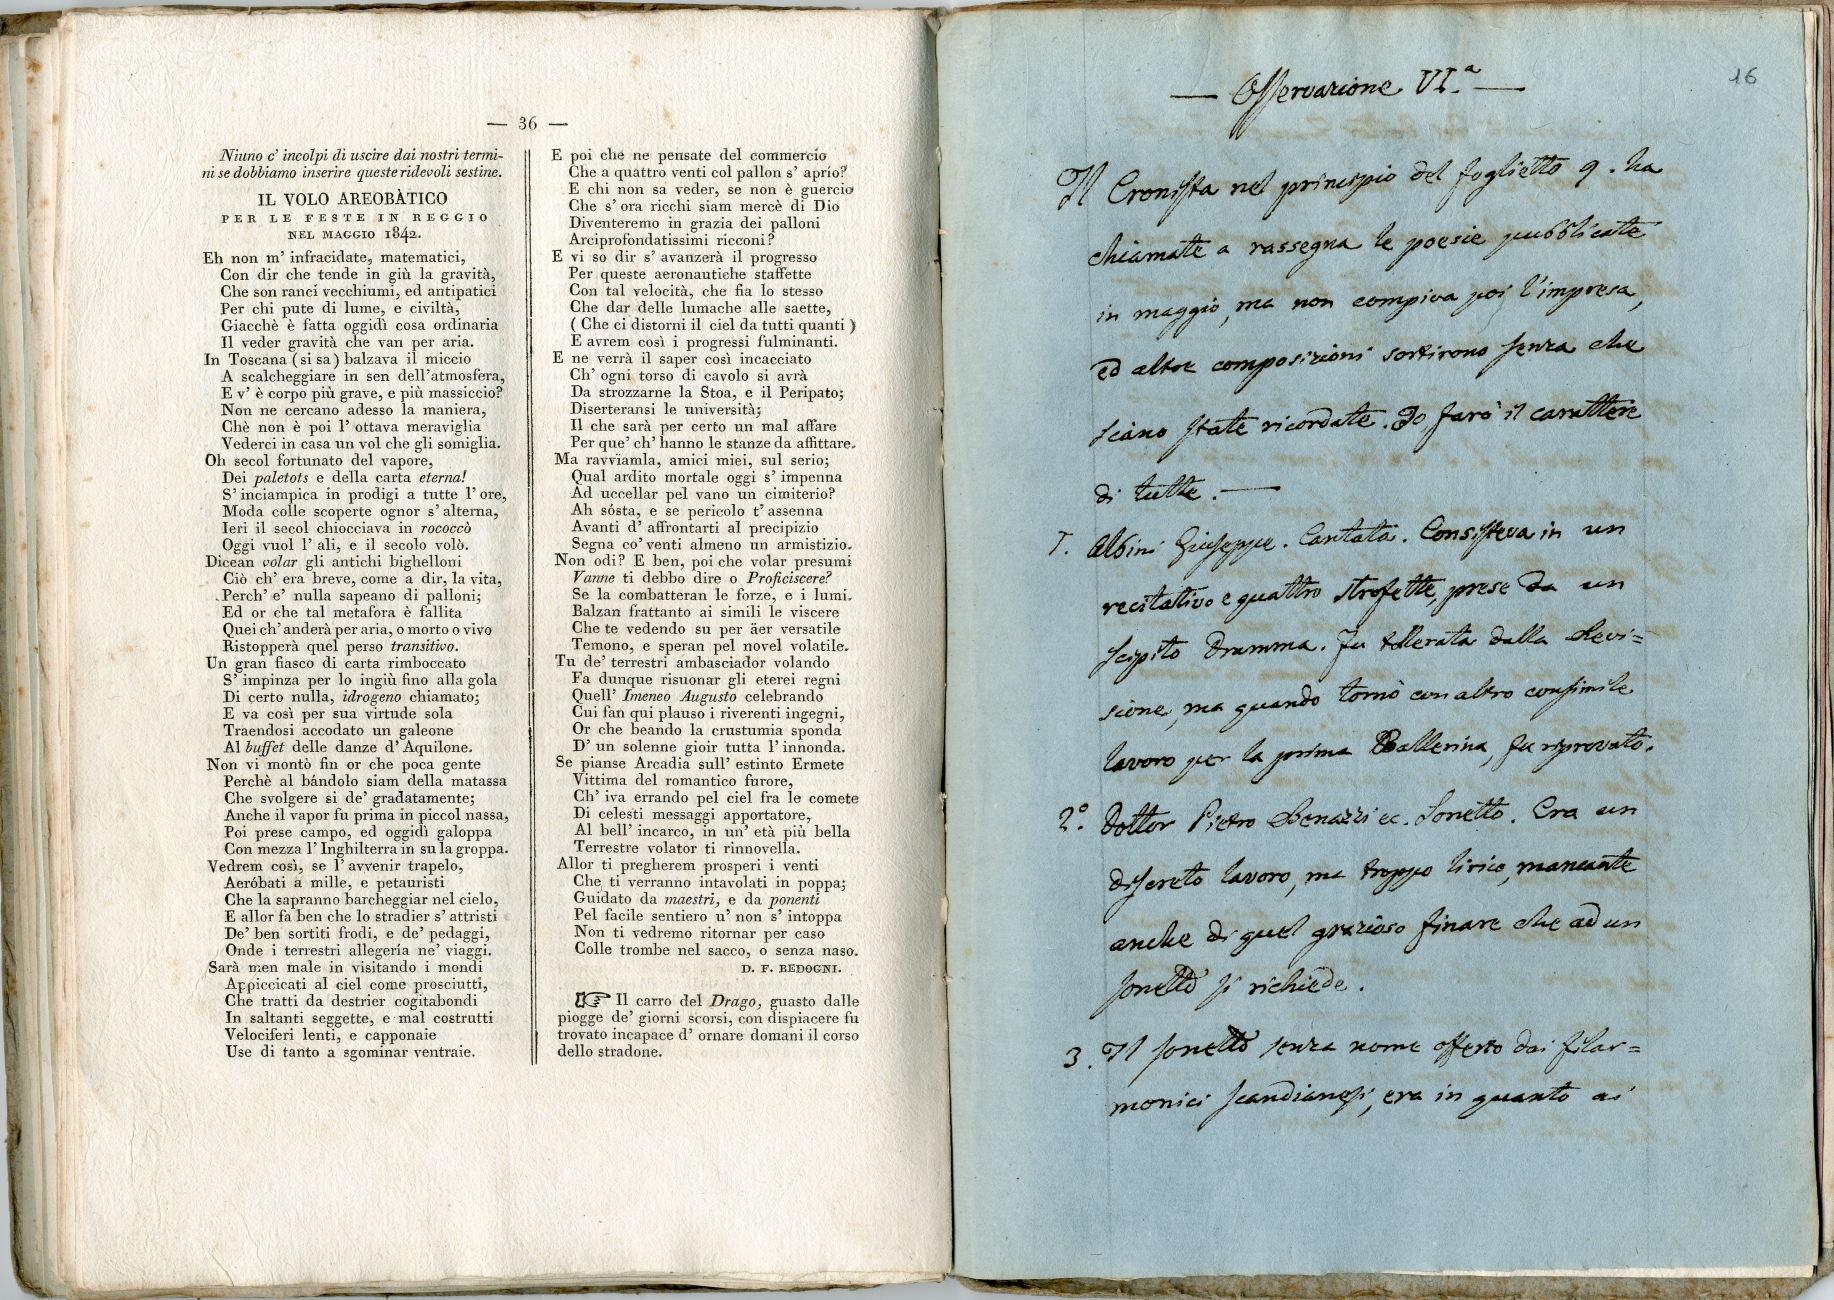 — 36 —
Niuno c' incolpi di uscire dai nostri termi-
ni se dobbiamo inserire queste ridevoli sestine.
IL VOLO AREOBÀTICO
PER LE FESTE IN REGGIO
NEL MAGGIO 1842.
Eh non m' infracidate, matematici,
Con dir che tende in giù la gravità,
Che son ranci vecchiumi, ed antipatici
Per chi pute di lume, e civiltà,
Giacchè è fatta oggidì cosa ordinaria
Il veder gravità che van per aria.
In Toscana (si sa) balzava il miccio
A scalcheggiare in sen dell' atmosfera,
E v' è corpo più grave, e più massiccio?
Non ne cercano adesso la maniera,
Chè non è poi l' ottava meraviglia
Vederci in casa un vol che gli somiglia.
Oh secol fortunato del vapore,
Dei paletots e della carta eterna!
S' inciampica in prodigi a tutte l' ore,
Moda colle scoperte ognor s' alterna,
Ieri il secol chiocciava in rococcò
Oggi vuol l' ali, e il secolo volò.
Dicean volar gli antichi bighelloni
Ciò ch' era breve, come a dir, la vita,
Perch' e' nulla sapeano di palloni;
Ed or che tal metafora è fallita
Quei ch' anderà per aria, o morto o vivo
Ristopperà quel perso transitivo.
Un gran fiasco di carta rimboccato
S' impinza per lo ingiù fino alla gola
Di certo nulla, idrogeno chiamato;
E va così per sua virtude sola
Traendosi accodato un galeone
Al buffet delle danze d' Aquilone.
Non vi montò fin or che poca gente
Perchè al bándolo siam della matassa
Che svolgere si de' gradatamente;
Anche il vapor fu prima in piccol nassa,
Poi prese campo, ed oggidì galoppa
Con mezza l' Inghilterra in su la groppa.
Vedrem così, se l' avvenir trapelo,
Aeróbati a mille, e petauristi
Che la sapranno barcheggiar nel cielo,
E allor fa ben che lo stradier s' attristi
De' ben sortiti frodi, e de' pedaggi,
Onde i terrestri allegería ne' viaggi.
Sarà men male in visitando i mondi
Appiccicati al ciel come prosciutti,
Che tratti da destrier cogitabondi
In saltanti seggette, e mal costrutti
Velociferi lenti, e capponaie
Use di tanto a sgominar ventraie.
E poi che ne pensate del commercio
Che a quattro venti col pallon s' aprío?
E chi non sa veder, se non è guercio
Che s' ora ricchi siam mercè di Dio
Diventeremo in grazia dei palloni
Arciprofondatissimi ricconi?
E vi so dir s' avanzerà il progresso
Per queste aeronautiche staffette
Con tal velocità, che fia lo stesso
Che dar delle lumache alle saette,
( Che ci distorni il ciel da tutti quanti )
E avrem così i progressi fulminanti.
E ne verrà il saper così incacciato
Ch' ogni torso di cavolo si avrà
Da strozzarne la Stoa, e il Peripato;
Diserteransi le università;
Il che sarà per certo un mal affare
Per que' ch' hanno le stanze da affittare.
Ma ravvïamla, amici miei, sul serio;
Qual ardito mortale oggi s' impenna
Ad uccellar pel vano un cimiterio?
Ah sósta, e se pericolo t' assenna
Avanti d' affrontarti al precipizio
Segna co' venti almeno un armistizio.
Non odi? E ben, poi che volar presumi
Vanne ti debbo dire o Proficiscere?
Se la combatteran le forze, e i lumi.
Balzan frattanto ai simili le viscere
Che te vedendo su per äer versatile
Temono, e speran pel novel volatile.
Tu de' terrestri ambasciador volando
Fa dunque risuonar gli eterei regni
Quell' Imeneo Augusto celebrando
Cui fan qui plauso i riverenti ingegni,
Or che beando la crustumia sponda
D' un solenne gioir tutta l' innonda.
Se pianse Arcadia sull' estinto Ermete
Vittima del romantico furore,
Ch' iva errando pel ciel fra le comete
Di celesti messaggi apportatore,
Al bell' incarco, in un' età più bella
Terrestre volator ti rinnovella.
Allor ti pregherem prosperi i venti
Che ti verranno intavolati in poppa;
Guidato da maestri, e da ponenti
Pel facile sentiero u' non s' intoppa
Non ti vedremo ritornar per caso
Colle trombe nel sacco, o senza naso.
D. F. BEDOGNI.
☞ Il carro del Drago, guasto dalle
piogge de' giorni scorsi, con dispiacere fu
trovato incapace d' ornare domani il corso
dello stradone.
16
— Osservazione VI.ª —
Il Cronista nel principio del foglietto 9. ha
chiamate a rassegna le poesie pubblicate
in maggio, ma non compiva poi l'impresa,
ed altre composizioni sortirono senza che
siano state ricordate. Io farò il carattere
di tutte. —
1. Albini Giuseppe. Cantata. Consisteva in un
recitativo e quattro strofette, prese da un
scipito Dramma. Fu tollerata dalla Revi=
sione, ma quando tornò con altro consimile
lavoro per la prima Ballerina, fu riprovato.
2.° Dottor Pietro Benazzi ec. Sonetto. Era un
discreto lavoro, ma troppo lirico, mancante
anche di quel grazioso finare che ad un
sonetto si richiede.
3. Il sonetto senza nome offerto dai filar=
monici Scandianesi, era in quanto ai